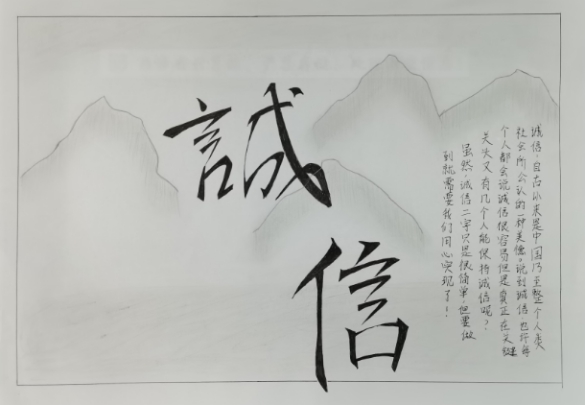 誠信
诚信，自古以来是中国乃至整个人类
社会所公认的一种美德。说到诚信 也许每
个人都会说诚信很容易但是真正在关键
关头又有几个人能保持诚信呢？
虽然“诚信”二字只是很简单，但要做
到就需要我们用心实现了！